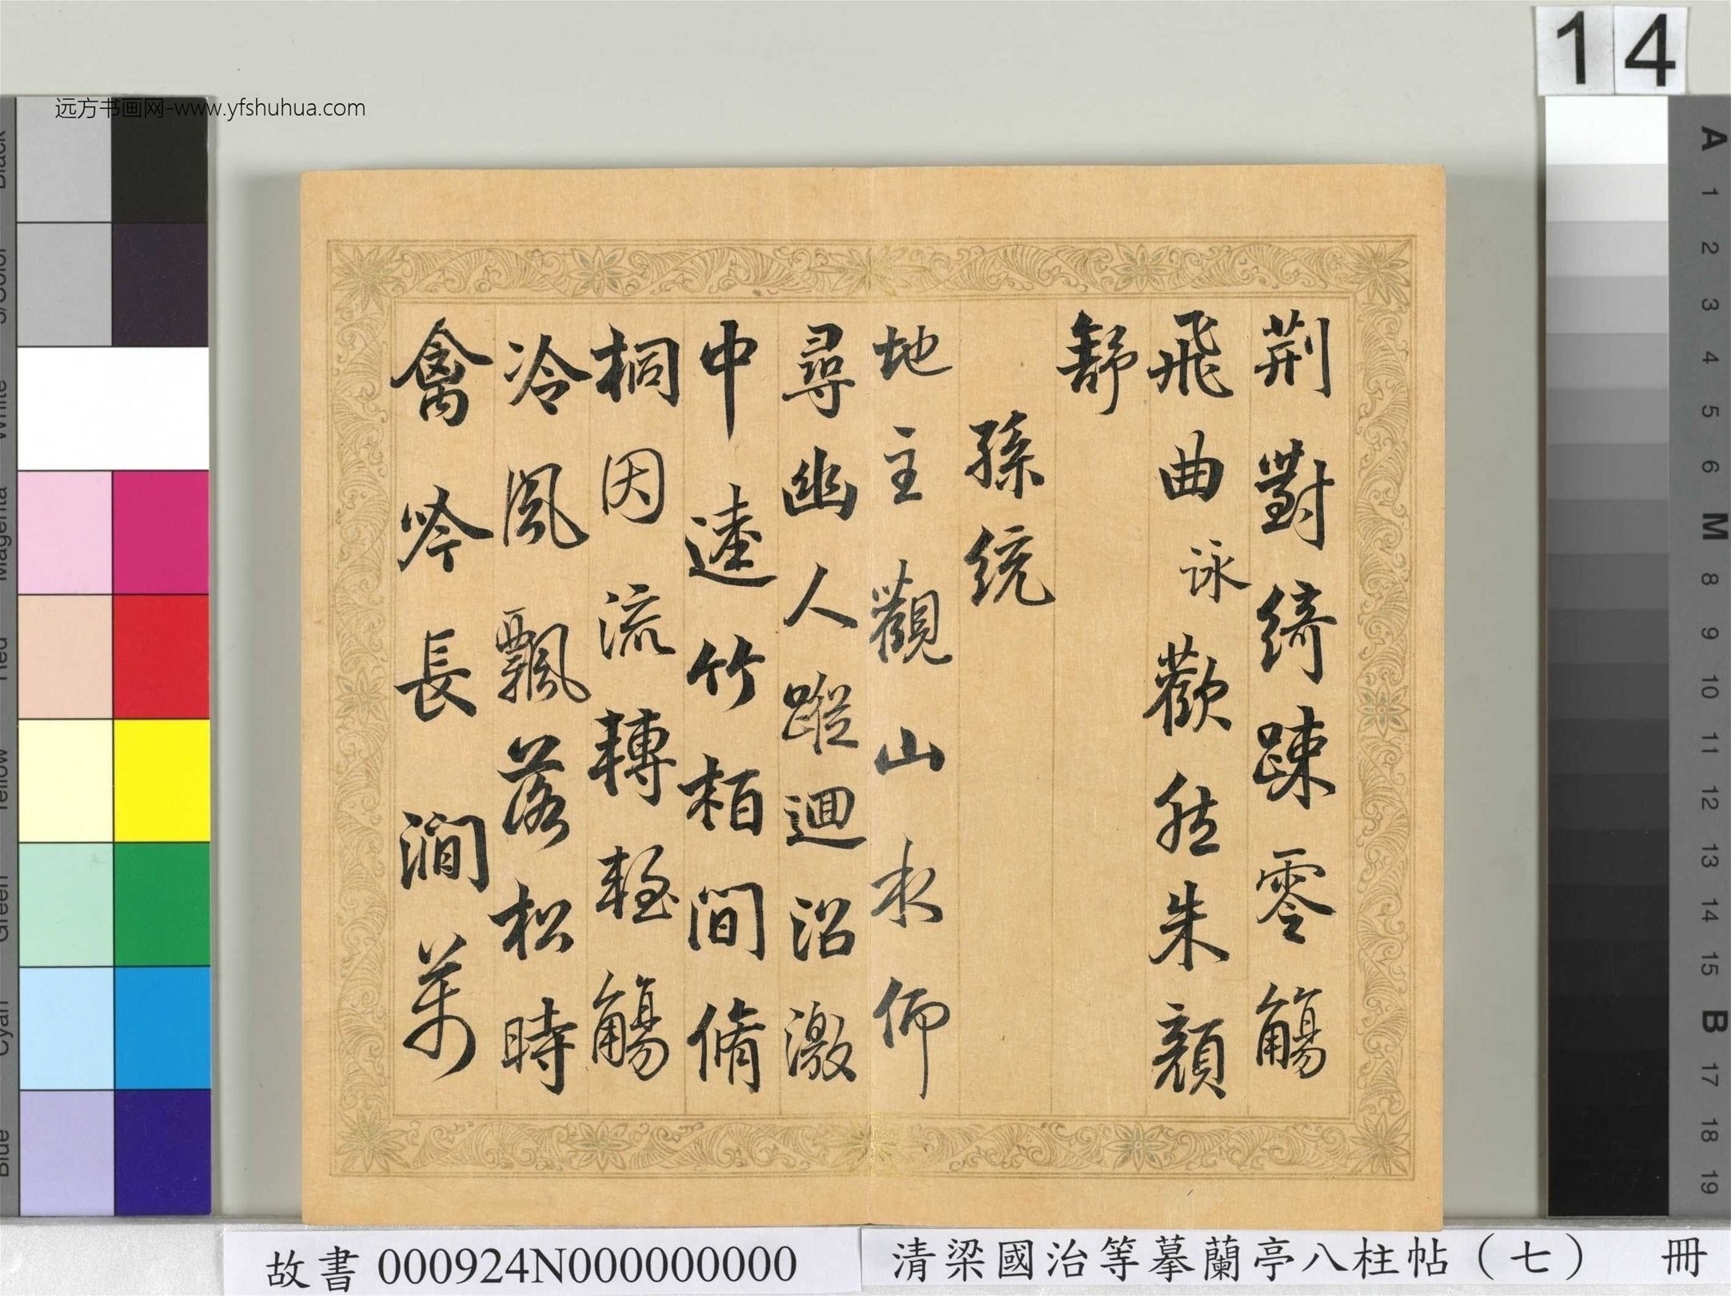 荊對綺疎零觴
飛曲詠歡然朱顏
舒
孫統
地主觀山水仰
尋幽人蹤迴沼激
中逵竹柏間脩
桐因流轉輕觴
冷風飄落松時
禽吟長澗萬
14
远方书画网-www.yfshuhua.com
A
1
2
3
4
5
6
M
8
9
10
11
12
13
14
15
B
17
18
19
Black
3/Color
White
Magenta
Red
Yellow
Green
Cyan
Blue
故書 000924N000000000
清梁國治等摹蘭亭八柱帖（七） 冊